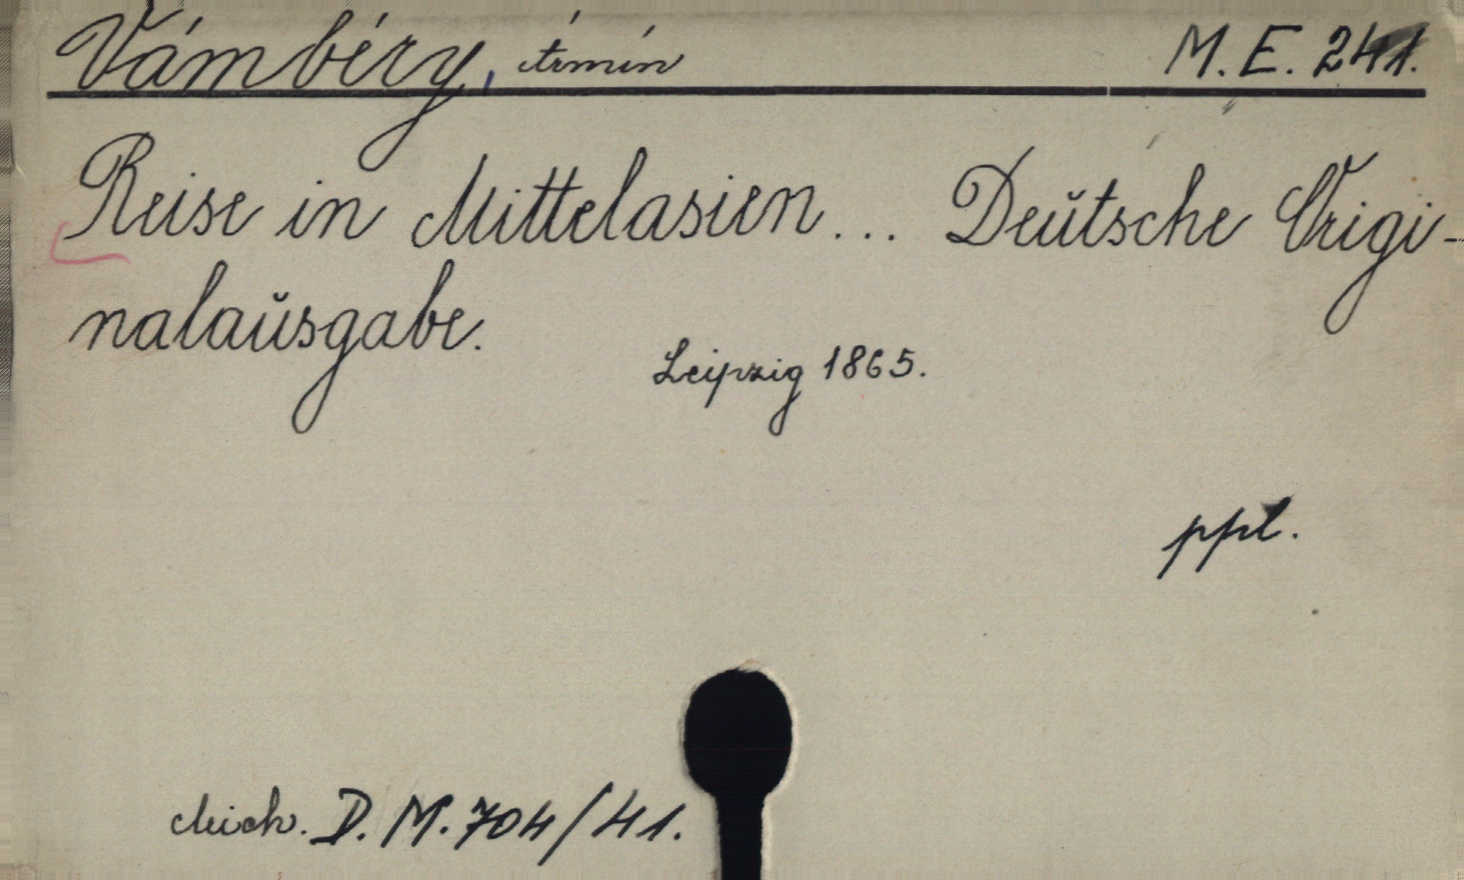 Vámbéry, Ármin M. E. 241.
Reise in Mittelasien... Deŭtsche Origi-
nalaŭsgabe.
Leipzig 1865.
ppl.
D. M. 704/41.